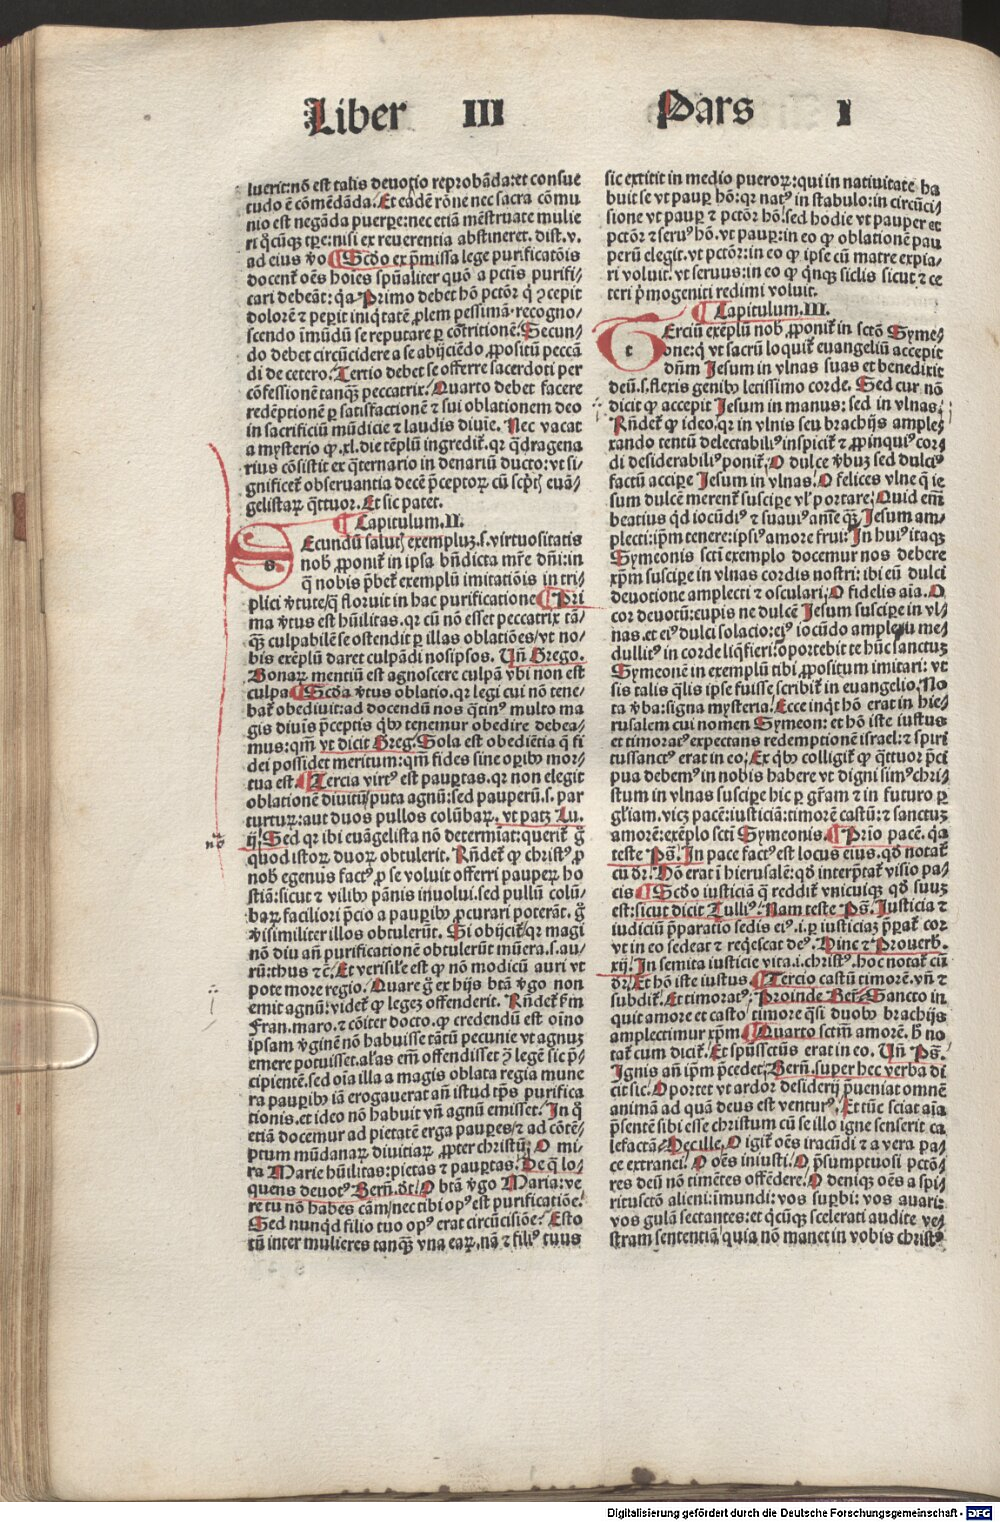 Liber III Pars I
luerit:nō est talis deuotio reprobāda:et consue
tudo ē cōmēdāda. Et eadē rōne nec sacra cōmu
nio est negāda puerpe:nec etiā mēstruate mulie
ri q̄cūqꝫ tp̄e:nisi ex reuerentia abstineret. dist. v.
ad eius v̄o ¶ Scd̄o ex p̄missa lege purificatōis
docent̄ oēs hoīes spūaliter quō a pctīs purifi/
cari debeāt: q̄a Primo debet hō pctōr q̄ ꝯcepit
dolorē ⁊ peperit iniq̄tatē ꝓlem pessimā recogno/
scendo īmūdū se reputare per cōtritionē. Secun/
do debet circūcidere a se abijciēdo ꝓpositū peccā
di de cetero. Tertio debet se offerre sacerdoti per
cōfessionē tanqꝫ peccatrix. Quarto debet facere
redēptionē ꝑ satisfactionē ⁊ sui oblationem deo
in sacrificiū mūdicie ⁊ laudis diuie. Nec vacat
a mysterio ꝙ .xl. die tēplū ingredit̄. qr q̄dragena
rius cōsistit ex q̄ternario in denariū ducto: vt si/
gnificet̄ obseruantia decē p̄ceptoꝝ cū scpt̄ꝭ euā/
gelistaꝝ q̄ttuor. Et sic patet.
¶ Capitulum. II.
Secundū salutꝭ exempluꝫ .s. virtuositatis
nob̄ ꝓponit̄ in ipsa bn̄dicta mr̄e dn̄i: in
q̄ nobis p̄bet̄ exemplū imitatiōis in tri/
plici v̄tute/ q̄ floruit in hac purificatione ¶ Pri
ma v̄tus est hūilitas. qr cū nō esset peccatrix tā/
qꝫ culpabilē se ostendit ꝑ illas oblatiōes/ vt no/
bis exēplū daret culpādi nosipsos. Vn̄ Grego.
Bonaꝝ mentiū est agnoscere culpā vbi non est
culpa ¶ Scd̄a v̄tus oblatio. qr legi cui nō tene/
bat̄ obediuit: ad docendū nos q̄tinꝰ multo ma
gis diuīs p̄ceptis qb̄ꝫ tenemur obedire debea/
mus: qm̄ vt dicit Greg. Sola est obediētia q̄ fi
dei possidet meritum: qm̄ fides sine oꝑibꝫ mor/
tua est. ¶ Tercia virtꝰ est pauꝑtas. qr non elegit
oblationē diuitū/ puta agnū: sed pauperū .s. par
turturꝝ: aut duos pullos colūbaꝝ. vt patꝫ Lu.
ij. Sed qr ibi euāgelista nō determiat: querit̄ g̊
quod istoꝝ duoꝝ obtulerit. Rn̄det̄ ꝙ christꝰ ꝓ
nob̄ egenus factꝰ ꝓ se voluit offerri pauperꝝ ho
stiā: sicut ⁊ vilibꝫ pānis inuolui. sed pullū colū/
baꝝ faciliori p̄cio a pauꝑibꝫ ꝓcurari poterāt. g̊
v̄isimiliter illos obtulerūt. Si obijcit̄ qr magi
nō diu añ purificationē obtulerūt mūera .s. au/
rū: thus ⁊ cē. Et verisil̄e est ꝙ nō modicū auri vt
pote more regio. Quare g̊ ex hijs btā v̄go non
emit agnū: videt̄ ꝙ legeꝫ offenderit. Rn̄det̄ bm̄
Fran. maro. ⁊ cōiter docto. ꝙ credendū est oīno
ipsam v̄ginē nō habuisse tātū pecunie vt agnuꝫ
emere potuisset. al'as em̄ offendisset ꝯ legē sic p̄/
cipientē. sed oīa illa a magis oblata regia mune
ra pauꝑibꝫ iā erogauerat añ istud tp̄s purifica
tionis. et ideo nō habuit vñ agnū emisset. In q̊
etiā docemur ad pietatē erga pauꝑes/ ⁊ ad cōtē/
ptum mūdanaꝝ diuitiaꝝ ꝓpter christū. O mi/
ra Marie hūilitas: pietas ⁊ pauꝑtas. De q̄ lo/
quens deuotꝰ Bern̄. dt̄. O btā v̄go Maria: ve
re tu nō habes cām/ nec tibi opꝰ est purificatiōe.
Sed nunqd filio tuo opꝰ erat circūcisiōe? Esto
tū inter mulieres tanqꝫ vna eaꝝ. nā ⁊ filiꝰ tuus
sic extitit in medio pueroꝝ: qui in nativitate ha
buit se vt paup hō: qr natꝰ in stabulo: in circūci/
sione vt paup ⁊ pctōr hō. sed hodie vt pauper et
pctōr ⁊ seruꝰ hō. vt pauꝑ: in eo ꝙ oblationē pau
perū elegit. vt pctōr: in eo ꝙ ipse cū matre expia/
ri voluit. vt seruus: in eo ꝙ q̄nqꝫ siclis sicut ⁊ ce
teri p̄mogeniti redimi voluit.
¶ Capitulum. III.
Terciū exēplū nob̄ ꝓponit̄ in sctō Syme/
one: q̄ vt sacrū loquit̄ euangeliū accepit
dn̄m Jesum in vlnas suas et benedixit
deū .s. flexis genibꝫ letissimo corde. Sed cur nō
dicit ꝙ accepit Jesum in manus: sed in vlnas.
Rn̄det̄ ꝙ ideo. qr in vlnis seu brachijs ample/
xando tentū delectabiliꝰ inspicit̄ ⁊ ꝓpinquiꝰ cor/
di desiderabiliꝰ ponit̄. O dulce v̄buꝫ sed dulciꝰ
factū acciꝑe Jesum in vlnas. O felices vlne q̄ ie
sum dulcē merent̄ susciꝑe vl' portare. Quid em̄
beatius qd̄ iocūdiꝰ ⁊ suauiꝰ anīe qꝫ Jesum am/
plecti: ip̄m tenere: ipsiꝰ amore frui: In huiꝰ itaqꝫ
Symeonis sctī exemplo docemur nos debere
xp̄m susciꝑe in vlnas cordis nostri: ibi eū dulci
deuotione amplecti ⁊ osculari. O fidelis aīa. O
cor deuotū: cupis ne dulcē Jesum susciꝑe in vl/
nas. et eiꝰ dulci solacio: eiꝰ iocūdo amplexu me/
dullitꝰ in corde liq̄fieri: oportebit te hūc sanctuꝫ
Symeonē in exemplū tibi ꝓpositum imitari: vt
sis talis q̄lis ipse fuisse scribit̄ in euangelio. No
ta v̄ba: signa mysteria. Ecce inqt̄ hō erat in hie/
rusalem cui nomen Symeon: et hō iste iustus
et timoratꝰ expectans redemptionē israel: ⁊ spiri
tussanctꝰ erat in eo. Ex qb̄ꝫ colligit̄ ꝙ q̄ttuor p̄ci
pua debemꝰ in nobis habere vt digni simꝰ chri/
stum in vlnas susciꝑe hic ꝑ gr̄am ⁊ in futuro ꝑ
gl'iam. vicꝫ pacē: iusticiā: timorē castū: ⁊ sanctuꝫ
amorē: exēplo sctī Symeonis. ¶ Prīo pacē. q̄a
teste Ps̄. In pace factꝰ est locus eius. qd̄ notat̄
cū dr̄. Hō erat ī hierusalē: qd̄ interp̄tat̄ visio pa/
cis ¶ Scd̄o iusticiā q̄ reddit̄ vnicuiqꝫ qd̄ suuꝫ
est: sicut dicit Tulliꝰ. Nam teste Ps̄. Justicia ⁊
iudiciū p̄paratio sedis eiꝰ. i. ꝑ iusticiaꝫ p̄pat̄ cor
vt in eo sedeat ⁊ req̄escat deꝰ. Hinc ⁊ Prouerb̄.
xij. In semita iusticie vita .i. christꝰ. hoc notat̄ cū
dr̄. Et hō iste iustus ¶ Tercio castū timorē. vñ ⁊
subdit̄. Et timoratꝰ. Proinde Ber̄. Sancto in
quit amore et casto timore q̄si duobꝫ brachijs
amplectimur xp̄m ¶ Quarto sctm̄ amorē. b̄ no
tat̄ cum dicit̄. Et spūssctūs erat in eo. Vñ Ps̄.
Ignis añ ip̄m p̄cedet. Bern̄. super hec verba di
cit sic. Oportet vt ardor desiderij p̄ueniat omnē
animā ad quā deus est venturꝰ. Et tūc sciat aīa
p̄sentē sibi esse christum cū se illo igne senserit ca
lefactā. Hec ille. O igit̄ oēs iracūdi ⁊ a vera pa/
ce extranei. O oēs iniusti. O p̄sumptuosi pctō/
res deū nō timētes offēdere. O deniqꝫ oēs a spi/
ritusctō alieni: īmundi: vos suꝑbi: vos auari:
vos gulā sectantes: et q̄cūqꝫ scelerati audite ve/
stram sententiā/ quia nō manet in vobis christꝰ
Digitalisierung gefördert durch die Deutsche Forschungsgemeinschaft - DFG